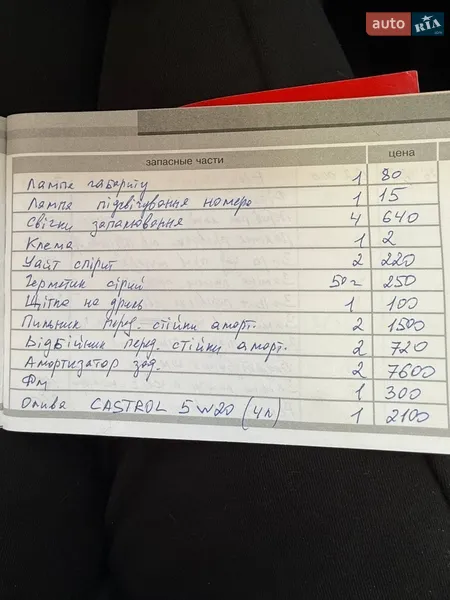 auto RIA
запасные части цена
Лампа габариту 1 80
Лампа підсвічування номера 1 15
Свічки запалювання 4 640
Клема 1 2
Уайт спірит 2 220
Герметик сірий 50г 250
Щітка на дриль 1 100
Пильник перед. стійки аморт. 2 1500
Відбійник перед. стійки аморт. 2 720
Амортизатор зад. 2 7600
Фм 1 300
Олива CASTROL 5W20 (4л) 1 2100